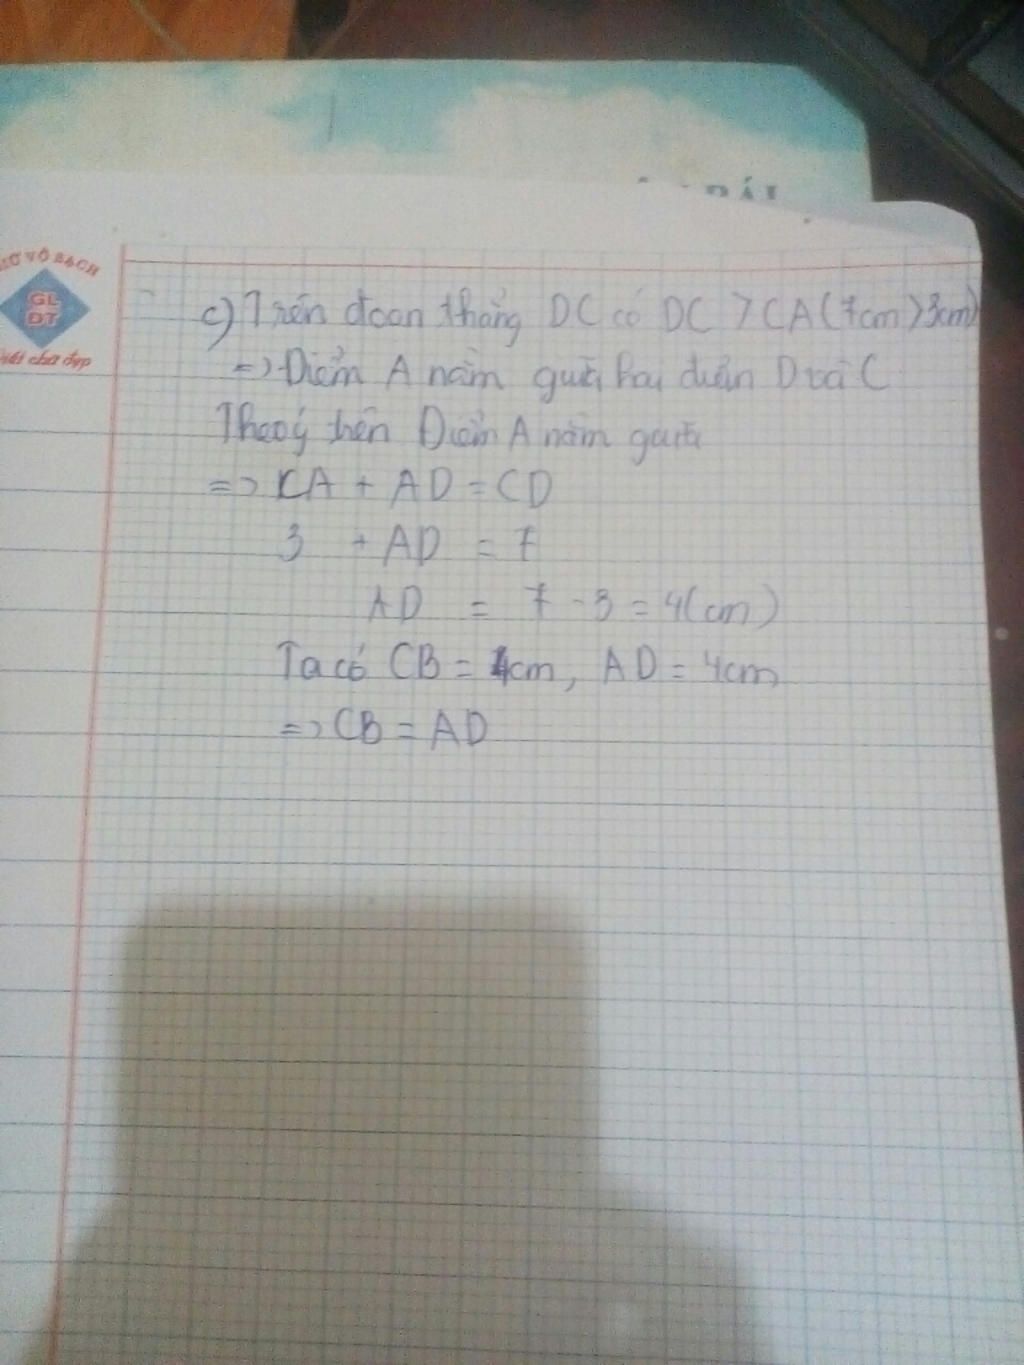 VÔ BẠCH
GL
ĐT
chữ đẹp
c) Trên đoạn thẳng DC có DC > CA (7cm > 3cm)
=> Điểm A nằm giữa hai điểm D và C
Theo ý trên Điểm A nằm giữa
=> CA + AD = CD
3 + AD = 7
AD = 7 - 3 = 4(cm)
Ta có CB = 4cm, AD = 4cm
=> CB = AD